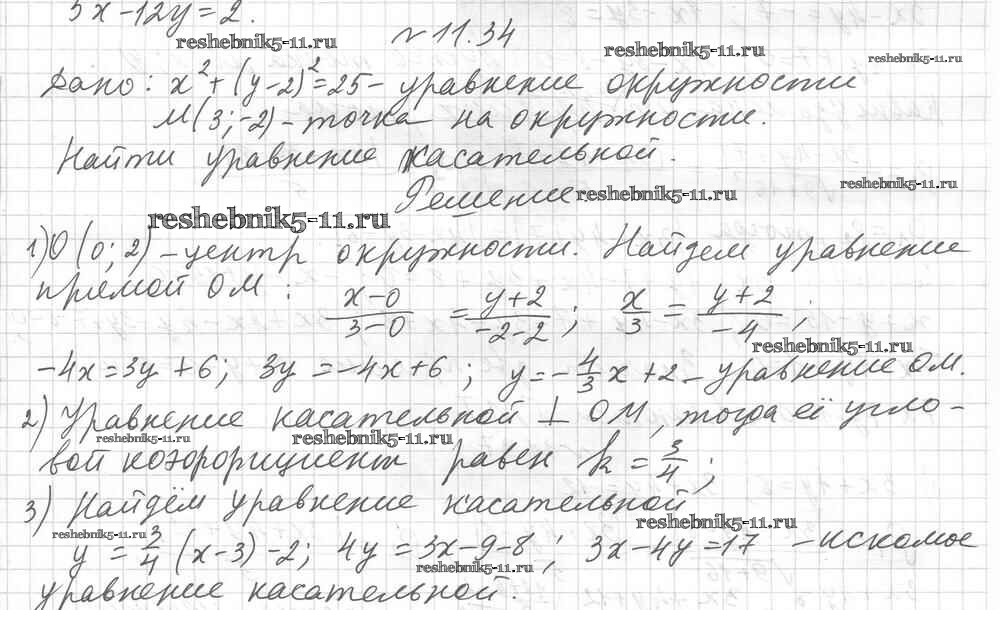 3x-12y=2.
reshebnik5-11.ru
№11.34
reshebnik5-11.ru
reshebnik5-11.ru
Дано: x²+(y-2)²=25 - уравнение окружности
M(3;-2) - точка на окружности.
Найти уравнение касательной.
reshebnik5-11.ru
Решение
reshebnik5-11.ru
reshebnik5-11.ru
1) O(0; 2) - центр окружности. Найдем уравнение
прямой OM: (x-0)/(3-0) = (y+2)/(-2-2); x/3 = (y+2)/(-4);
reshebnik5-11.ru
-4x=3y+6; 3y=-4x+6; y=-4/3x+2 - уравнение OM.
2) Уравнение касательной ⊥ OM, тогда её угло-
reshebnik5-11.ru
reshebnik5-11.ru
вой коэффициент равен k=3/4;
3) Найдём уравнение касательной
reshebnik5-11.ru
reshebnik5-11.ru
y=3/4(x-3)-2; 4y=3x-9-8; 3x-4y=17 - искомое
reshebnik5-11.ru
уравнение касательной.